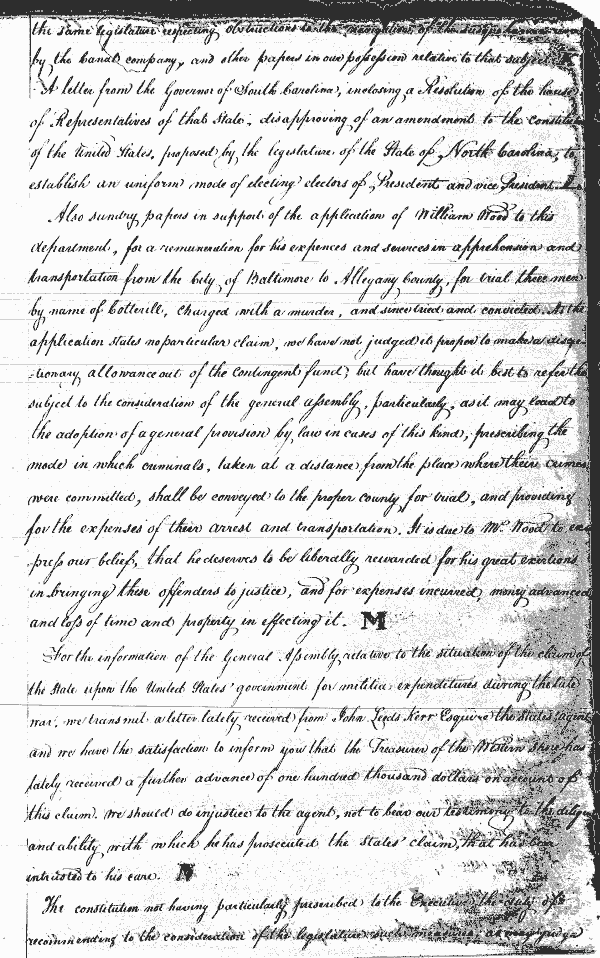 the same legislature respecting obstructions to the navigation of the
by the canal company, and other papers in our possession relative to that subject. K
A letter from the Governor of South Carolina, inclosing a Resolution of the house
of Representatives of that State, disapproving of an amendment to the constitu
of the United States, proposed by the legislature of the State of North Carolina, to
establish an uniform mode of electing electors of President and vice President. L
Also sundry papers in support of the application of William Wood to this
department, for a remuneration for his expences and services in apprehension and
transportation from the City of Baltimore to Allegany County, for trial three men
by name of Cotterill, charged with a murder, and since tried and convicted. As the
application states no particular claim, we have not judged it proper to make a discre-
-tionary allowance out of the Contingent fund; but have thought it best to refer the
subject to the consideration of the general assembly, particularly, as it may lead to
the adoption of a general provision by law in cases of this kind, prescribing the
mode in which criminals, taken at a distance from the place where their crimes
were committed, shall be conveyed to the proper county for trial, and providing
for the expenses of their arrest and transportation. It is due to Mr. Wood to ex
press our belief, that he deserves to be liberally rewarded for his great exertions
in bringing these offenders to justice, and for expenses incurred, money advanced
and loss of time and property in effecting it. M
For the information of the General Assembly relative to the situation of the claim of
the State upon the United States' government for militia expenditures during the late
war, we transmit a letter lately received from John Leeds Kerr Esquire the States' agent
and we have the satisfaction to inform you that the Treasurer of the Western Shore has
lately received a further advance of one hundred thousand dollars on account of
this claim. We should do injustice to the agent, not to bear our testimony to the dilige
and ability with which he has prosecuted the States' claim, that has been
intrusted to his care. N
The constitution not having particularly prescribed to the Executive, the duty of
recommending to the consideration of the legislature such measures, as may